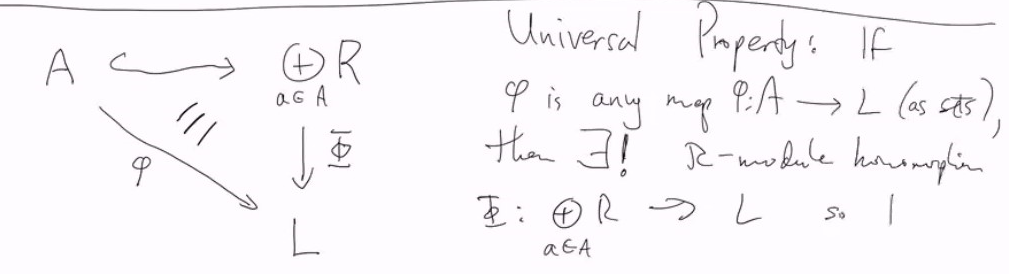 A ↪ ⊕ R
a∈A
φ
Φ
L
Universal Property: If
φ is any map φ: A → L (as sets),
then ∃! R-module homomorphism
Φ: ⊕ R → L so
a∈A